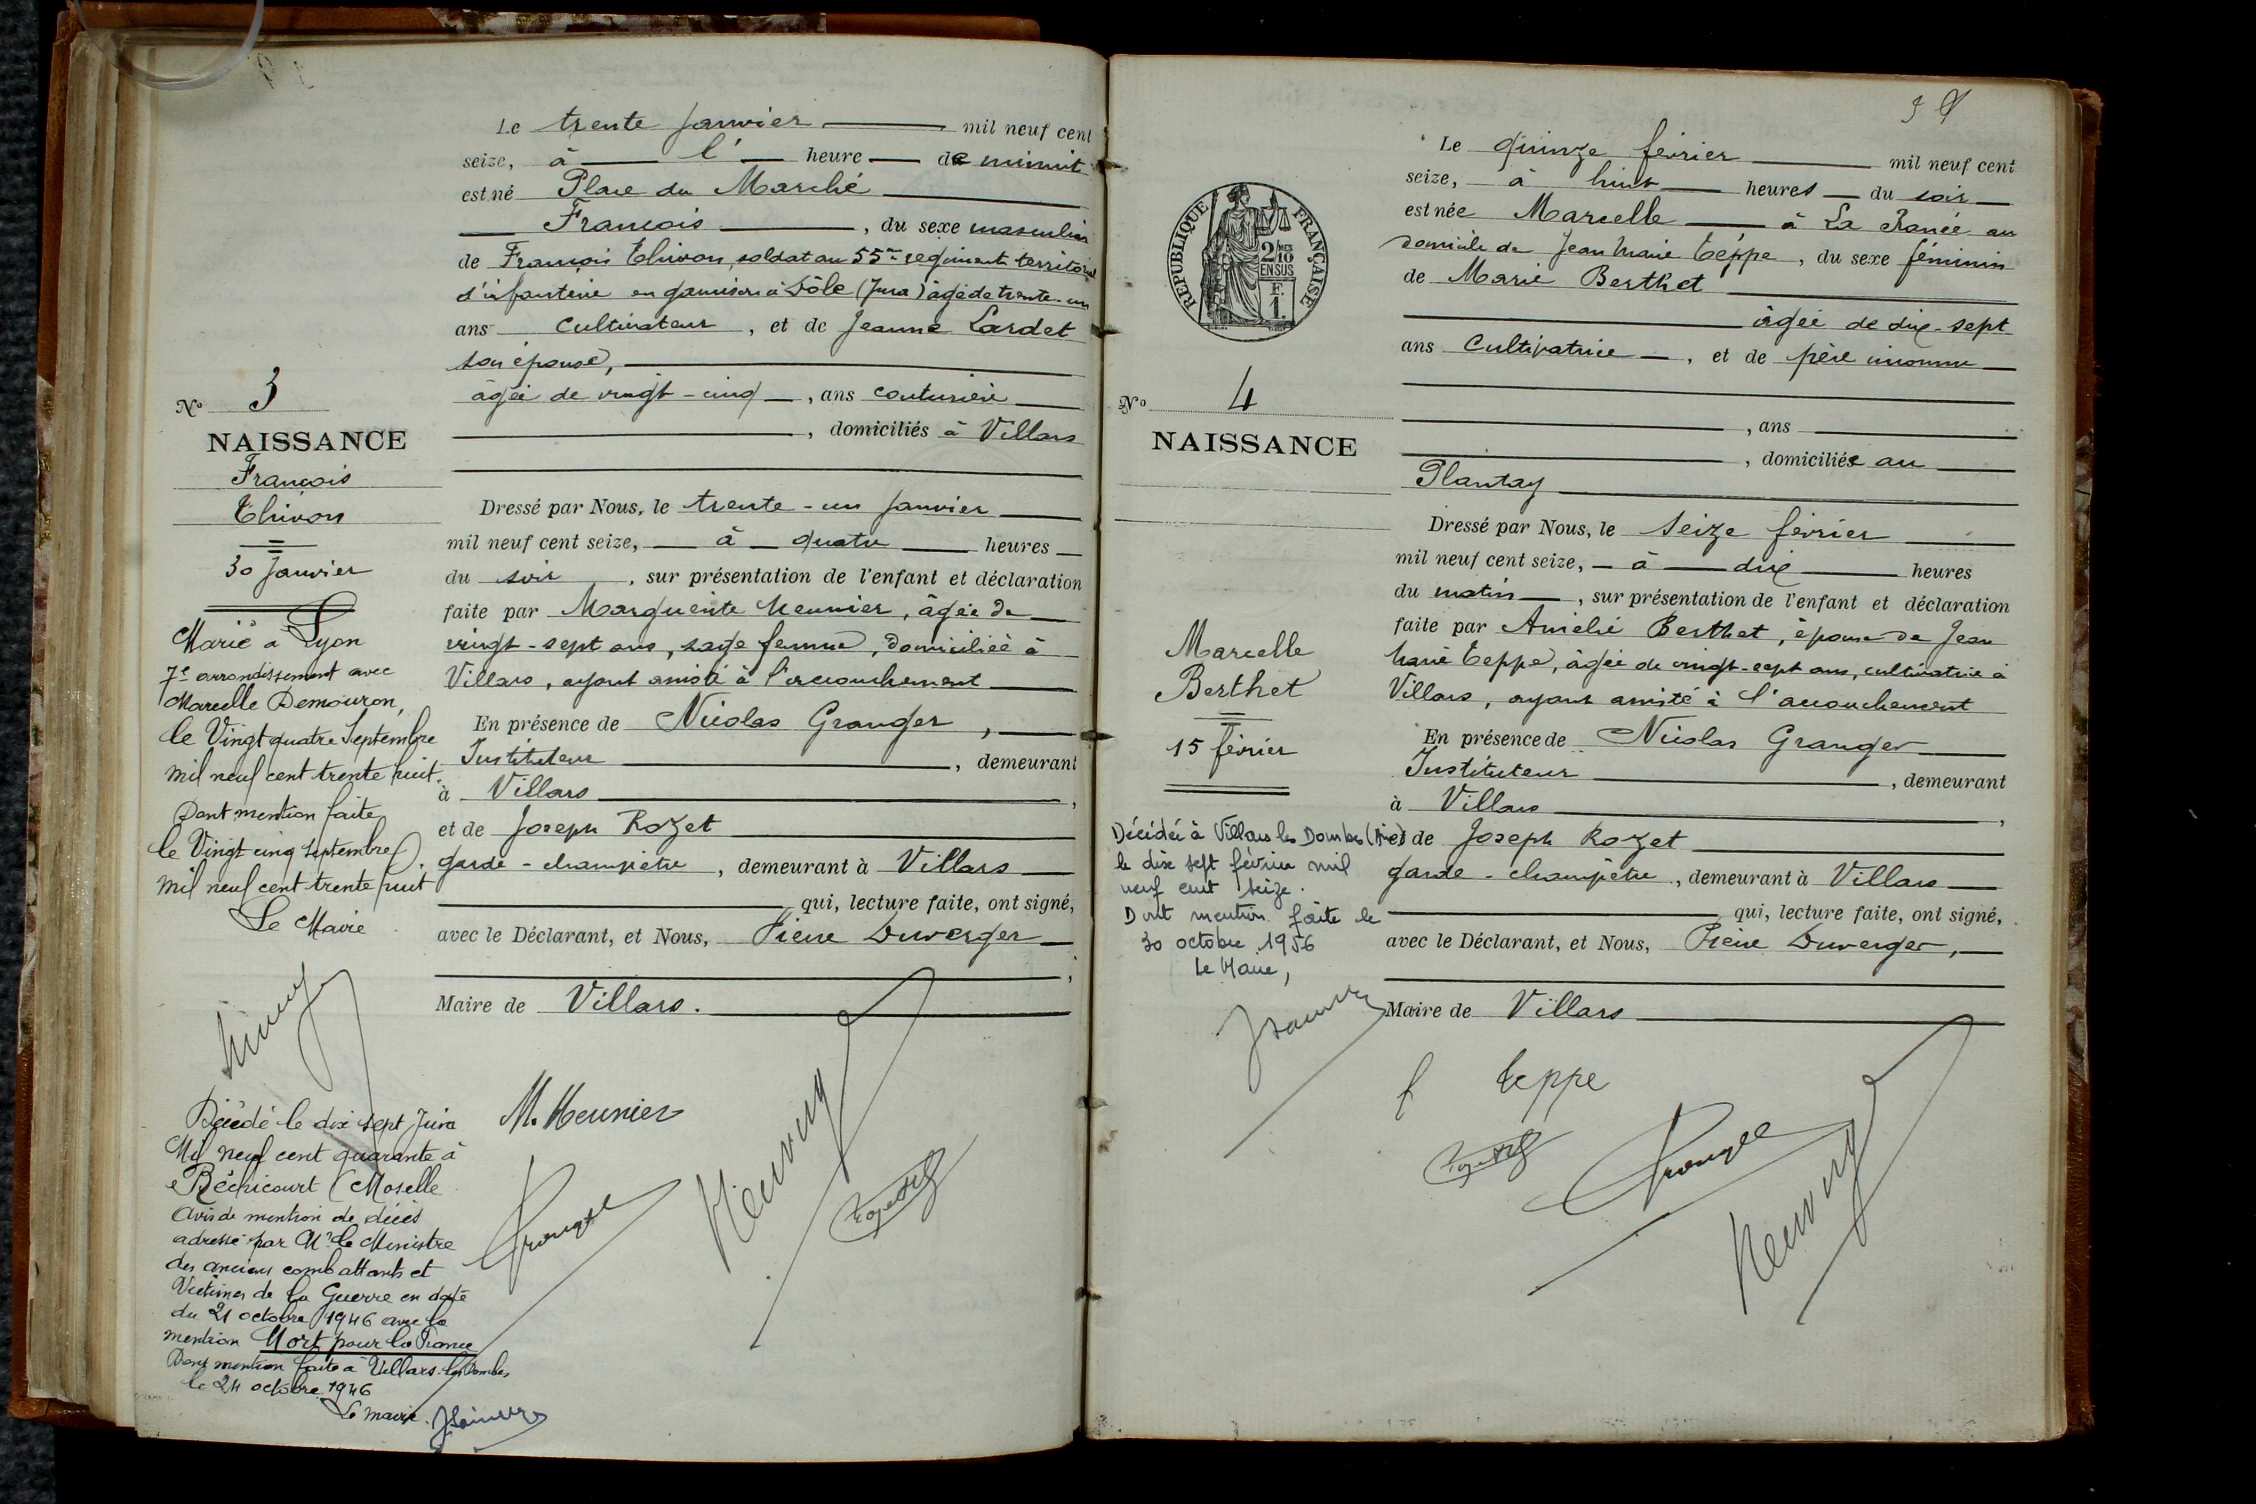 Le trente janvier mil neuf cent
seize, à l' heure de minuit
est né Place du Marché
François, du sexe masculin
de François Thivon, soldat au 55me régiment territorial
d'infanterie en garnison à Dôle (Jura) âgé de trente-un
ans cultivateur, et de Jeanne Lardet
son épouse,
âgée de vingt-cinq, ans couturière
, domiciliés à Villars
Dressé par Nous, le trente-un janvier
mil neuf cent seize, à quatre heures
du soir, sur présentation de l'enfant et déclaration
faite par Marguerite Meunier, âgée de
vingt-sept ans, sage femme, domiciliée à
Villars, ayant assisté à l'accouchement
En présence de Nicolas Granger,
Instituteur, demeurant
à Villars,
et de Joseph Rozet
garde-champêtre, demeurant à Villars
qui, lecture faite, ont signé,
avec le Déclarant, et Nous, Pierre Duverger
;
Maire de Villars.
M. Meunier
No 3
NAISSANCE
François
Thivon
30 Janvier
Marié à Lyon
7e arrondissement avec
Marcelle Demouron,
le Vingt quatre Septembre
mil neuf cent trente huit.
Dont mention faite
le Vingt cinq Septembre
mil neuf cent trente huit
Le Maire
Décédé le dix sept Juin
Mil neuf cent quarante à
Réchicourt (Moselle
Avis de mention de décès
adressé par Mr le Ministre
des anciens combattants et
Victimes de la Guerre en date
du 21 octobre 1946 avec la
mention Mort pour la France
Dont mention faite à Villars-les-Dombes
le 24 octobre 1946
Le maire.
REPUBLIQUE FRANÇAISE
2/10
EN SUS
F.
1.
No 4
NAISSANCE
Marcelle
Berthet
15 février
Décédée à Villars les Dombes (Ain)
le dix sept février mil
neuf cent seize.
Dont mention faite le
30 octobre 1956
Le Maire,
Le quinze février mil neuf cent
seize, à huit heures du soir
est née Marcelle à La Ranée au
domicile de Jean Marie Teppe, du sexe féminin
de Marie Berthet
âgée de dix-sept
ans cultivatrice, et de père inconnu
, ans
, domiciliée au
Plantay
Dressé par Nous, le seize février
mil neuf cent seize, à dix heures
du matin, sur présentation de l'enfant et déclaration
faite par Amélie Berthet, épouse de Jean
Marie Teppe, âgée de vingt-sept ans, cultivatrice à
Villars, ayant assisté à l'accouchement
En présence de Nicolas Granger
Instituteur, demeurant
à Villars,
et de Joseph Rozet
garde-champêtre, demeurant à Villars
qui, lecture faite, ont signé,
avec le Déclarant, et Nous, Pierre Duverger,
Maire de Villars
Teppe